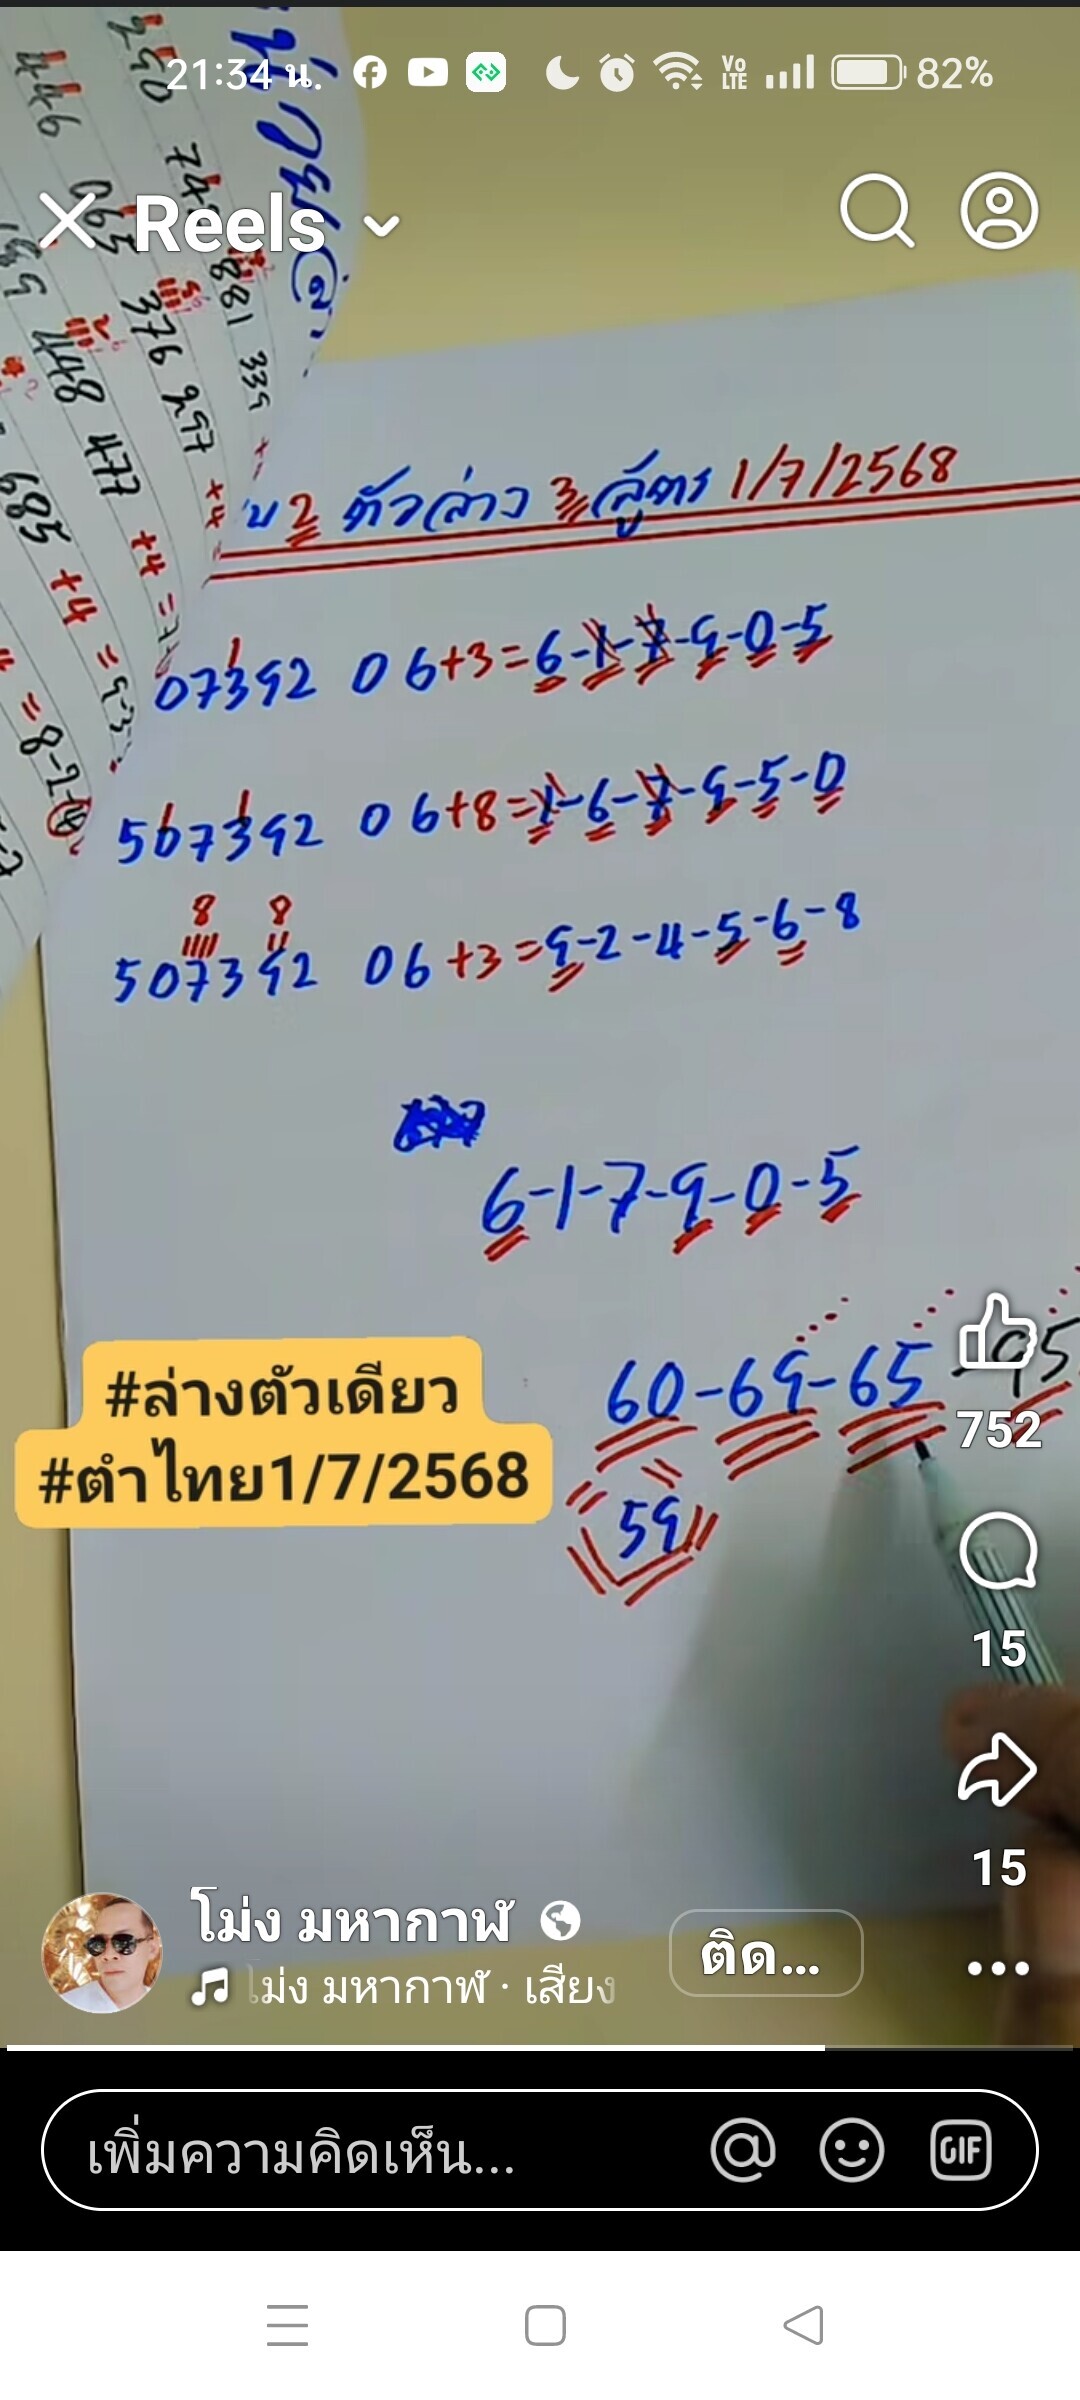 21:34 น. Vo LTE 82%
Reels
250
446 065
881 339
376 297
448 477 +4 =
685 +4 =
= 8-2
บ 2 ตัวล่าง 3 สูตร 1/7/2568
07392 06+3=6-1-7-9-0-5
507392 06+8=1-6-7-9-5-0
8 8
507392 06+3=9-2-4-5-6-8
6-1-7-9-0-5
60-69-65-95
59
#ล่างตัวเดียว
#ตำไทย1/7/2568
752
15
15
โม่ง มหากาฬ
ติด...
โม่ง มหากาฬ · เสียง
เพิ่มความคิดเห็น...
GIF